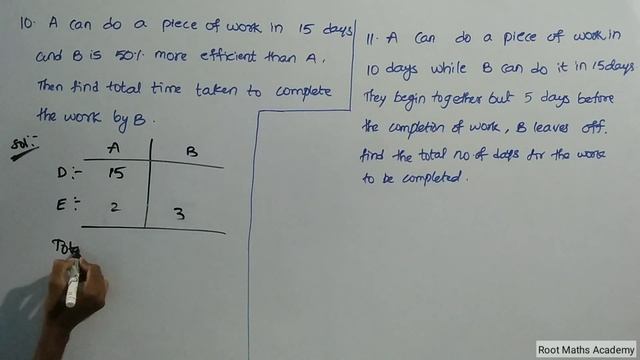 10. A can do a piece of work in 15 days
and B is 50% more efficient than A.
Then find total time taken to complete
the work by B.
Sol:-
A B
D:- 15
E:- 2 3
Tot
11. A can do a piece of work in
10 days while B can do it in 15days.
They begin together but 5 days before
the completion of work, B leaves off.
find the total no.of days for the work
to be completed.
Root Maths Academy